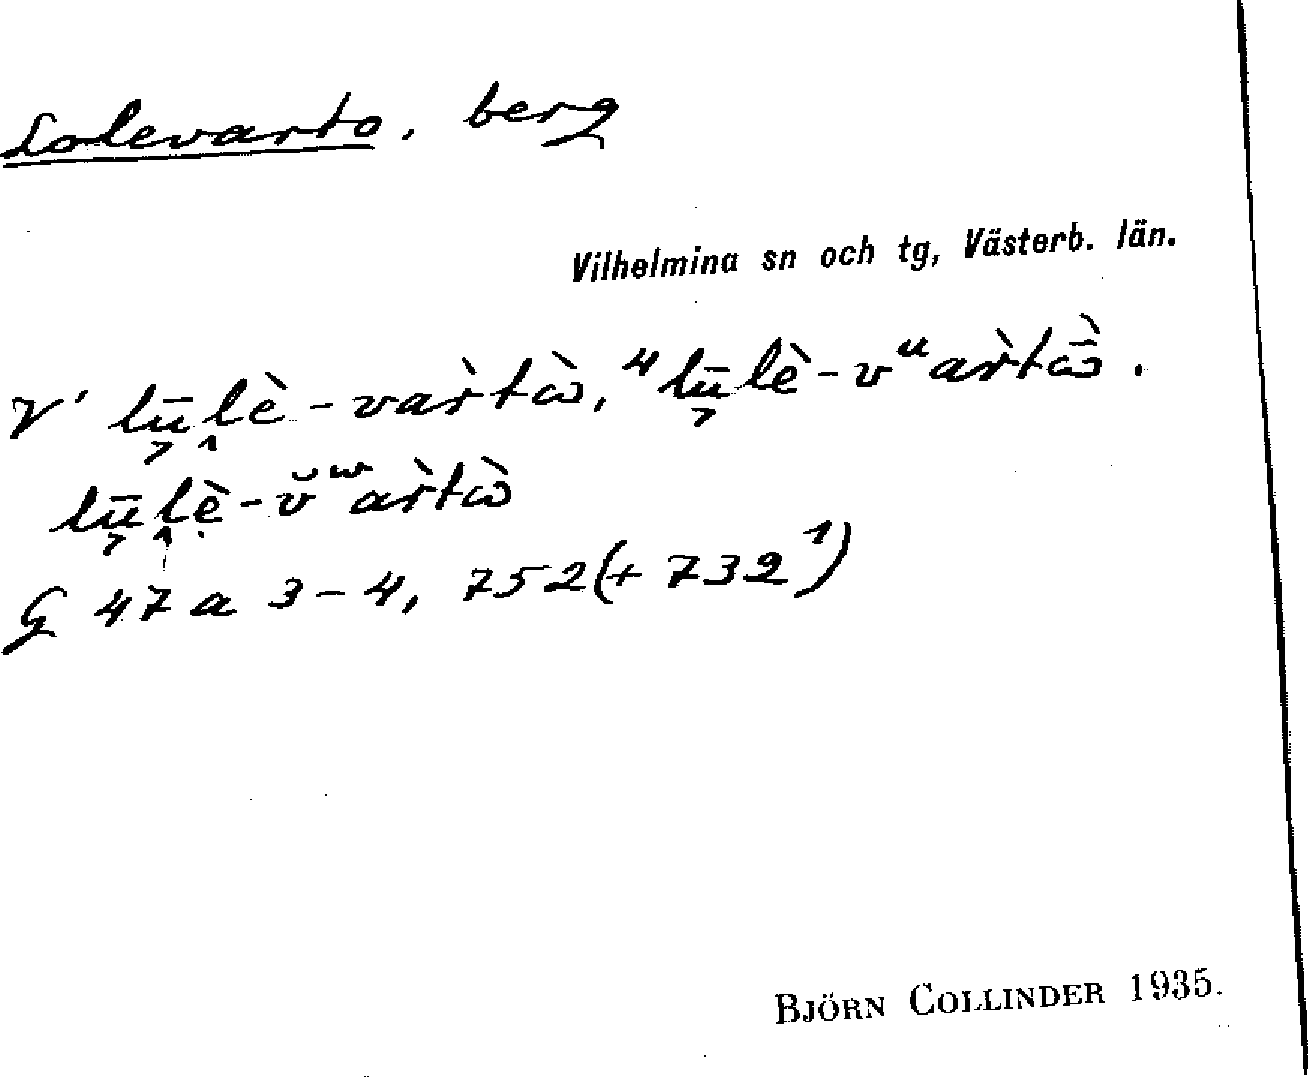 Lolevarto, berg
Vilhelmina sn och tg, Västerb. län.
V' lū͔ḽè-vàrtὼ, ⁴lū͔lè-vᵘàrtὼ̄.
lū͔ḽẹ̀-v̆ʷàrtὼ
G 47 a 3-4, 752(+ 732¹)
BJÖRN COLLINDER 1935.